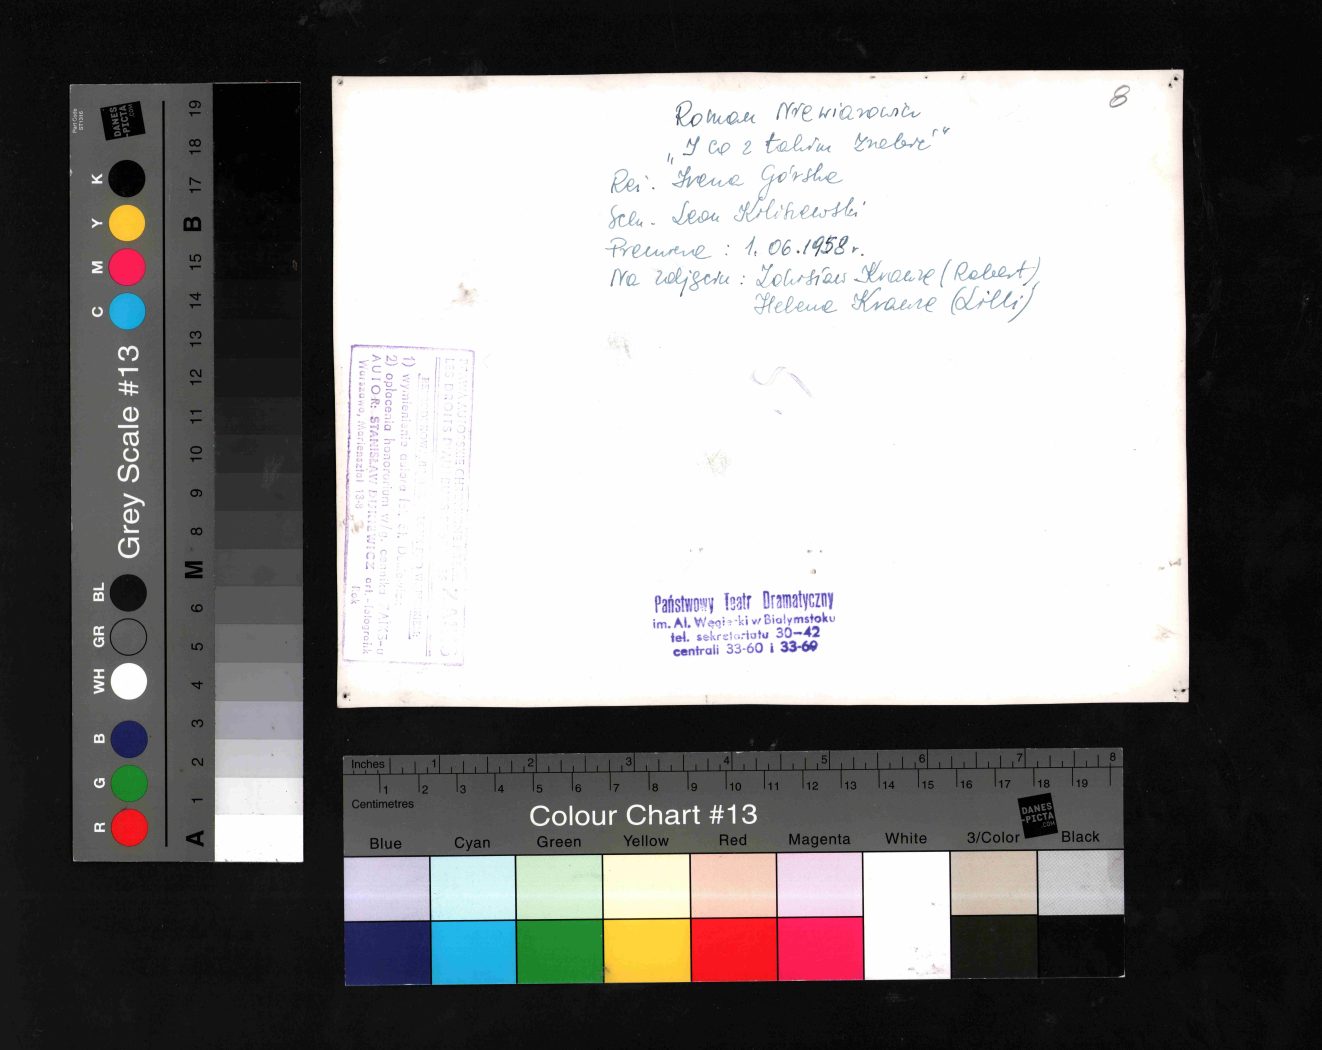 8
Roman Niewiarowicz
„I co z takim zrobić"
Reż. Irena Górska
Scen. Leon Kiliszewski
Premiera : 1.06.1958 r.
Na zdjęciu : Zdzisław Krauze (Robert)
Helena Krauze (Lilli)
1) wymienienia autora
2) opłacenia honorarium w/g. cennika ZAiKS-u
AUTOR: STANISŁAW art.-fotografik
Warszawa, Mariensztat
Państwowy Teatr Dramatyczny
im. Al. Węgierki w Białymstoku
tel. sekretariatu 30-42
centrali 33-60 i 33-69
Part Code
ST13IS
DANES
-PICTA
.COM
K Y M C
Grey Scale #13
BL GR WH
B G R
19
18
17
B
15
14
13
12
11
10
9
8
M
6
5
4
3
2
1
A
Inches 1 2 3 4 5 6 7 8
1 2 3 4 5 6 7 8 9 10 11 12 13 14 15 16 17 18 19
Centimetres
Colour Chart #13
DANES
-PICTA
.COM
Blue Cyan Green Yellow Red Magenta White 3/Color Black